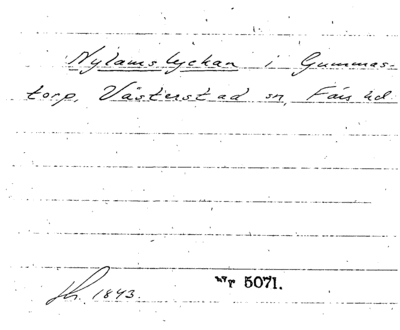 Nylamslyckan i Gummas-
torp, Västerstad sn, Färs hd
1843.
Nr 5071.